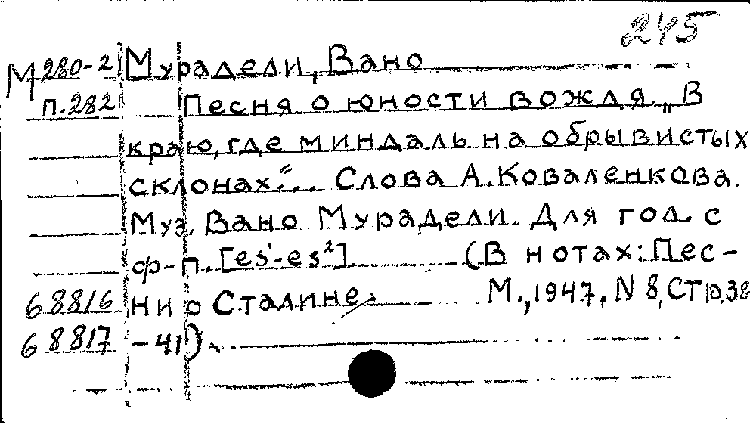 245
М 280-2 Мурадели, Вано
П.282 Песня о юности вождя. „В
краю, где миндаль на обрывистых
склонах“... Слова А.Коваленкова.
Муз. Вано Мурадели. Для гол. с
ф-п. [es¹-es²] (В нотах: Пес-
68816 ни о Сталине. М., 1947, N 8, стр.38
68817 -41).